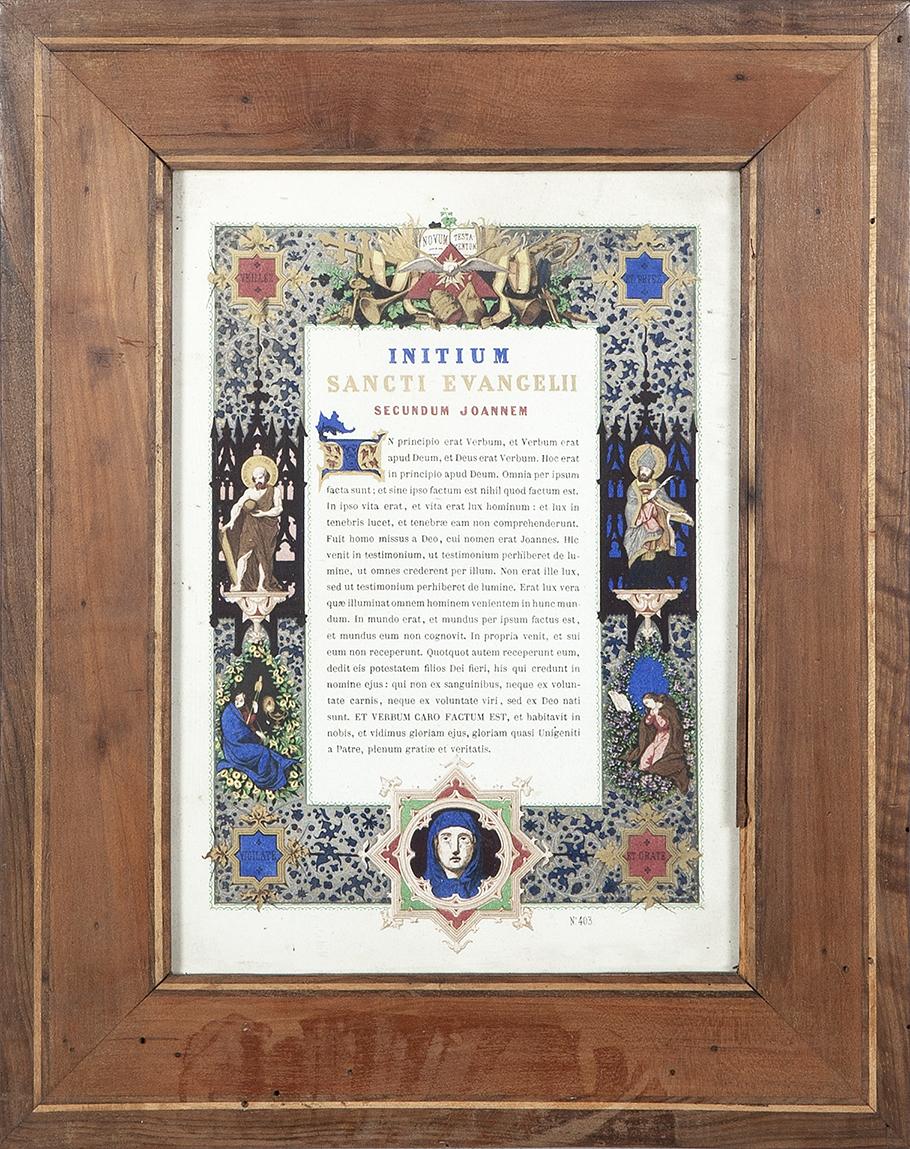 NOVUM TESTA-
MENTUM
VEILLEZ
ET PRIEZ
INITIUM
SANCTI EVANGELII
SECUNDUM JOANNEM
IN principio erat Verbum, et Verbum erat
apud Deum, et Deus erat Verbum. Hoc erat
in principio apud Deum. Omnia per ipsum
facta sunt; et sine ipso factum est nihil quod factum est.
In ipso vita erat, et vita erat lux hominum : et lux in
tenebris lucet, et tenebræ eam non comprehenderunt.
Fuit homo missus a Deo, cui nomen erat Joannes. Hic
venit in testimonium, ut testimonium perhiberet de lu-
mine, ut omnes crederent per illum. Non erat ille lux,
sed ut testimonium perhiberet de lumine. Erat lux vera
quæ illuminat omnem hominem venientem in hunc mun-
dum. In mundo erat, et mundus per ipsum factus est,
et mundus eum non cognovit. In propria venit, et sui
eum non receperunt. Quotquot autem receperunt eum,
dedit eis potestatem filios Dei fieri, his qui credunt in
nomine ejus : qui non ex sanguinibus, neque ex volun-
tate carnis, neque ex voluntate viri, sed ex Deo nati
sunt. ET VERBUM CARO FACTUM EST, et habitavit in
nobis, et vidimus gloriam ejus, gloriam quasi Unigeniti
a Patre, plenum gratiæ et veritatis.
VIGILATE
ET ORATE
N° 403